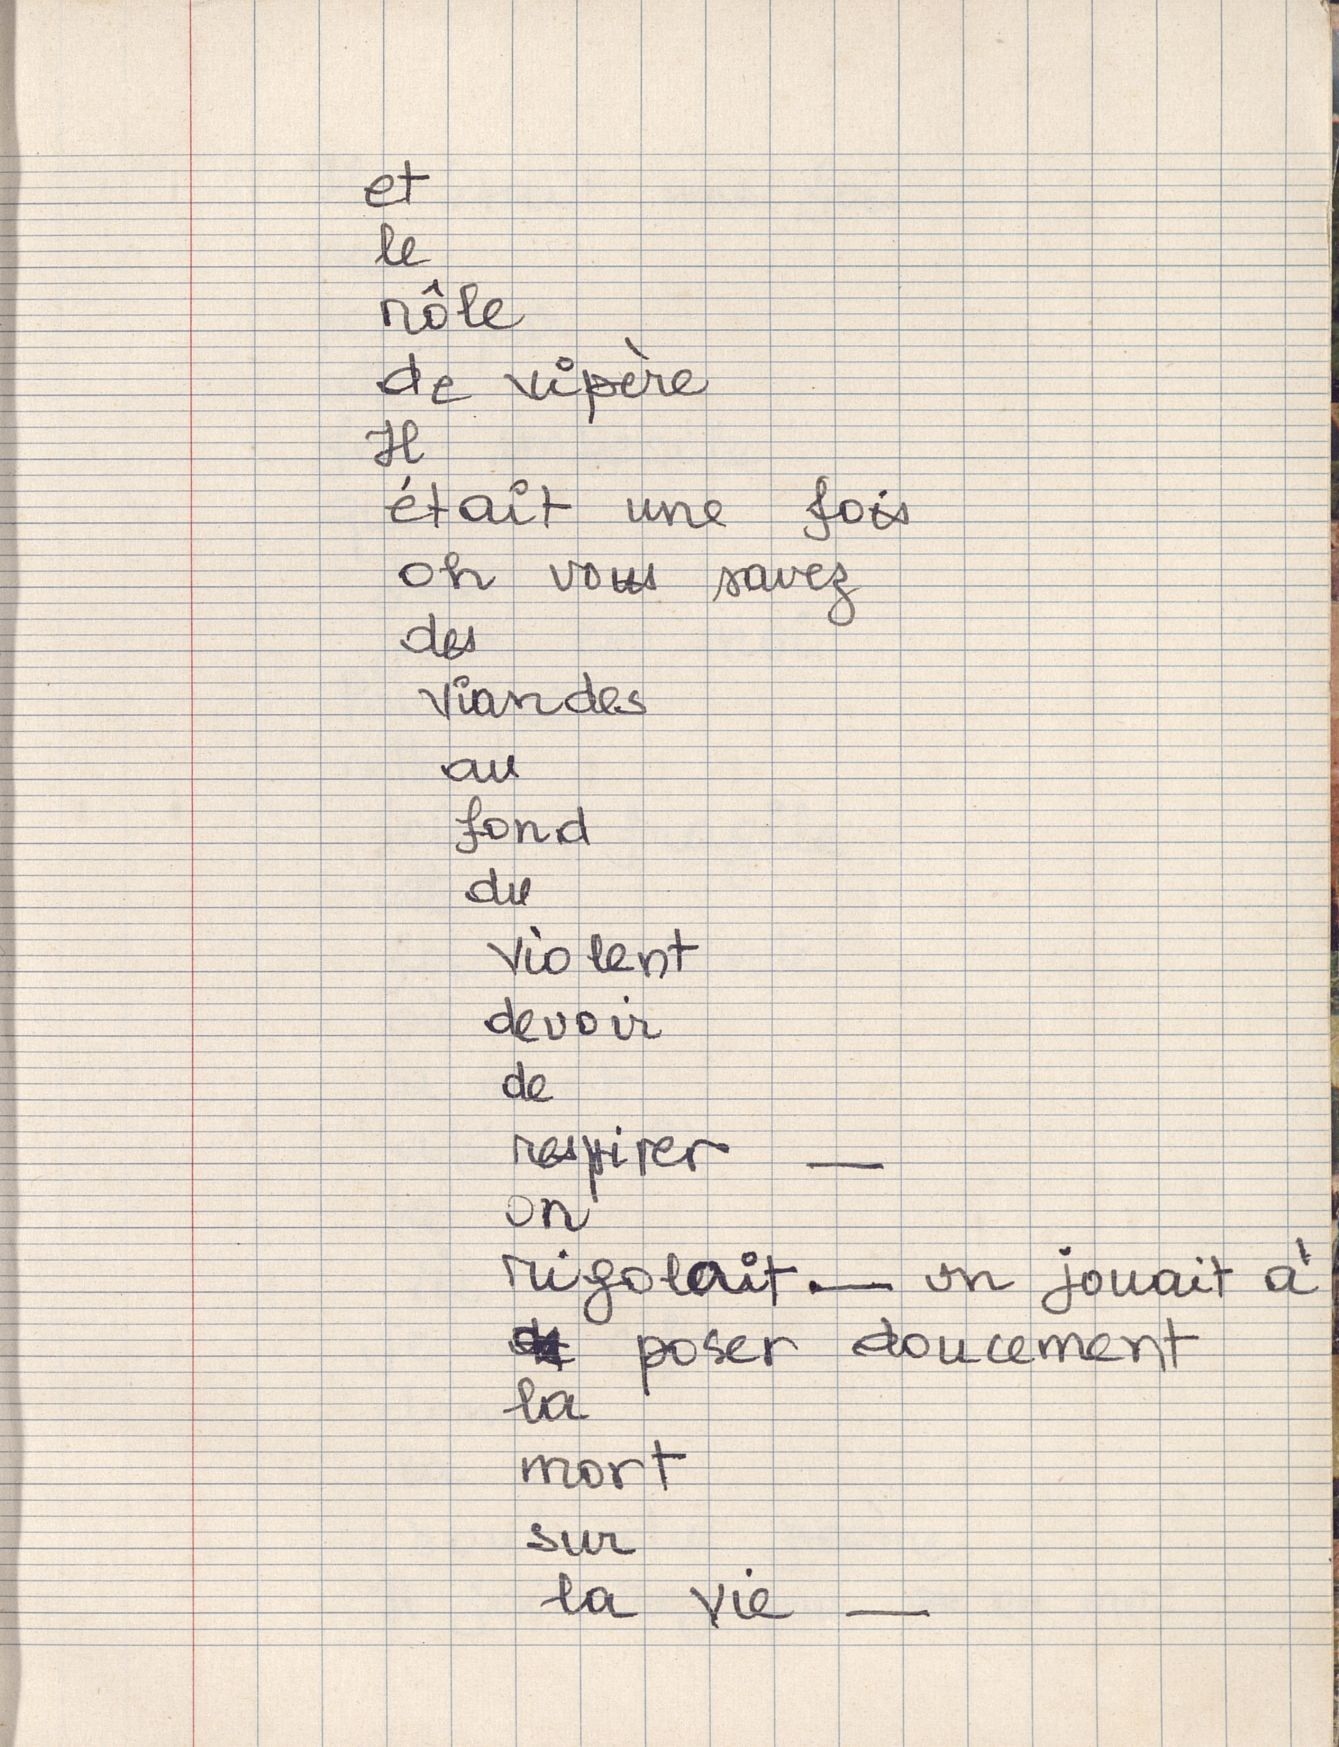 et
le
rôle
de vipère
Il
était une fois
oh vous savez
des
viandes
au
fond
du
violent
devoir
de
respirer —
on
rigolait. — on jouait à
poser doucement
la
mort
sur
la vie —